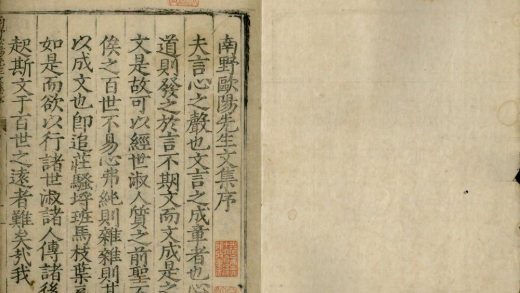 南野歐陽先生文集序
夫言心之聲也文言之成章者也心
道則發之於言不期文而文成是之
文是故可以經世淑人質之前聖不
俟之百世不易心弗純則雜雜則其
以成文也卽追莊騷埒班馬枝葉
如是而欲以行諸世淑諸人傳諸後
起斯文于百世之遠者難矣哉我